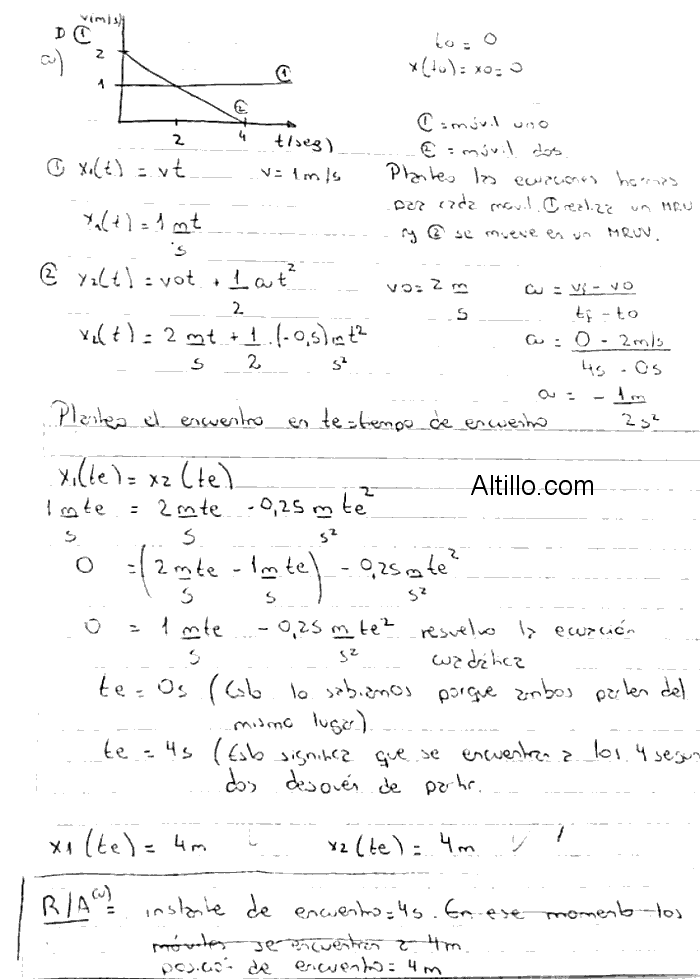 D ①
a)
v(m/s)
2
1
①
②
2 4 t(seg)
t0 = 0
x(t0) = x0 = 0
① = móvil uno
② = móvil dos
① x1(t) = vt v = 1 m/s
x1(t) = 1 m/s t
Planteo las ecuaciones horarias
para cada movil. ① realiza un MRU
y ② se mueve en un MRUV.
② x2(t) = v0t + 1/2 at² v0 = 2 m/s a = vf - v0 / tf - t0
x2(t) = 2 m/s t + 1/2 . (-0,5) m/s² t² a = 0 - 2m/s / 4s - 0s
a = - 1m / 2s²
Planteo el encuentro en te = tiempo de encuentro
x1(te) = x2(te)
Altillo.com
1 m/s te = 2 m/s te - 0,25 m/s² te²
0 = (2 m/s te - 1 m/s te) - 0,25 m/s² te²
0 = 1 m/s te - 0,25 m/s² te² resuelvo la ecuación
cuadrática
te = 0s (Esto lo sabiamos porque ambos parten del
mismo lugar)
te = 4s (Esto significa que se encuentran a los 4 segun
dos después de partir.
x1(te) = 4m x2(te) = 4m
R/A (a) = instante de encuentro = 4s. En ese momento los
móviles se encuentran a 4m.
posición de encuentro = 4m